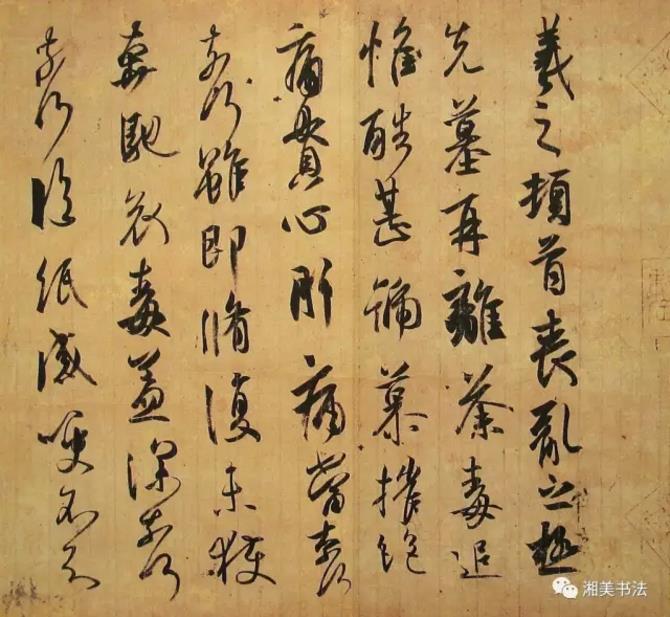 羲之頓首喪亂之極
先墓再離荼毒追
惟酷甚號慕摧絕
痛貫心肝痛當奈何
奈何雖即脩復未獲
奔馳哀毒益深奈何
奈何臨紙感哽不知
湘美书法